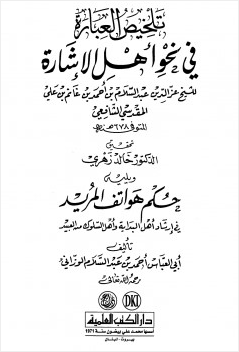 تلخيص العبارة
في نحو أهل الإشارة
للشيخ عز الدين عبد السلام بن أحمد بن غانم بن علي
المقدسي الشافعي
المتوفى ٦٧٨ هـ
تحقيق
الدكتور خالد زهري
ويليه
حكم هواتف المريد
في إرشاد أهل البداية وأهل السلوك من العبيد
تأليف
أبي العباس أحمد بن عبد السلام الوزاني
رحمه الله تعالى
DKi
دار الكتب العلمية
أسسها محمد علي بيضون سنة 1971
بيروت - لبنان